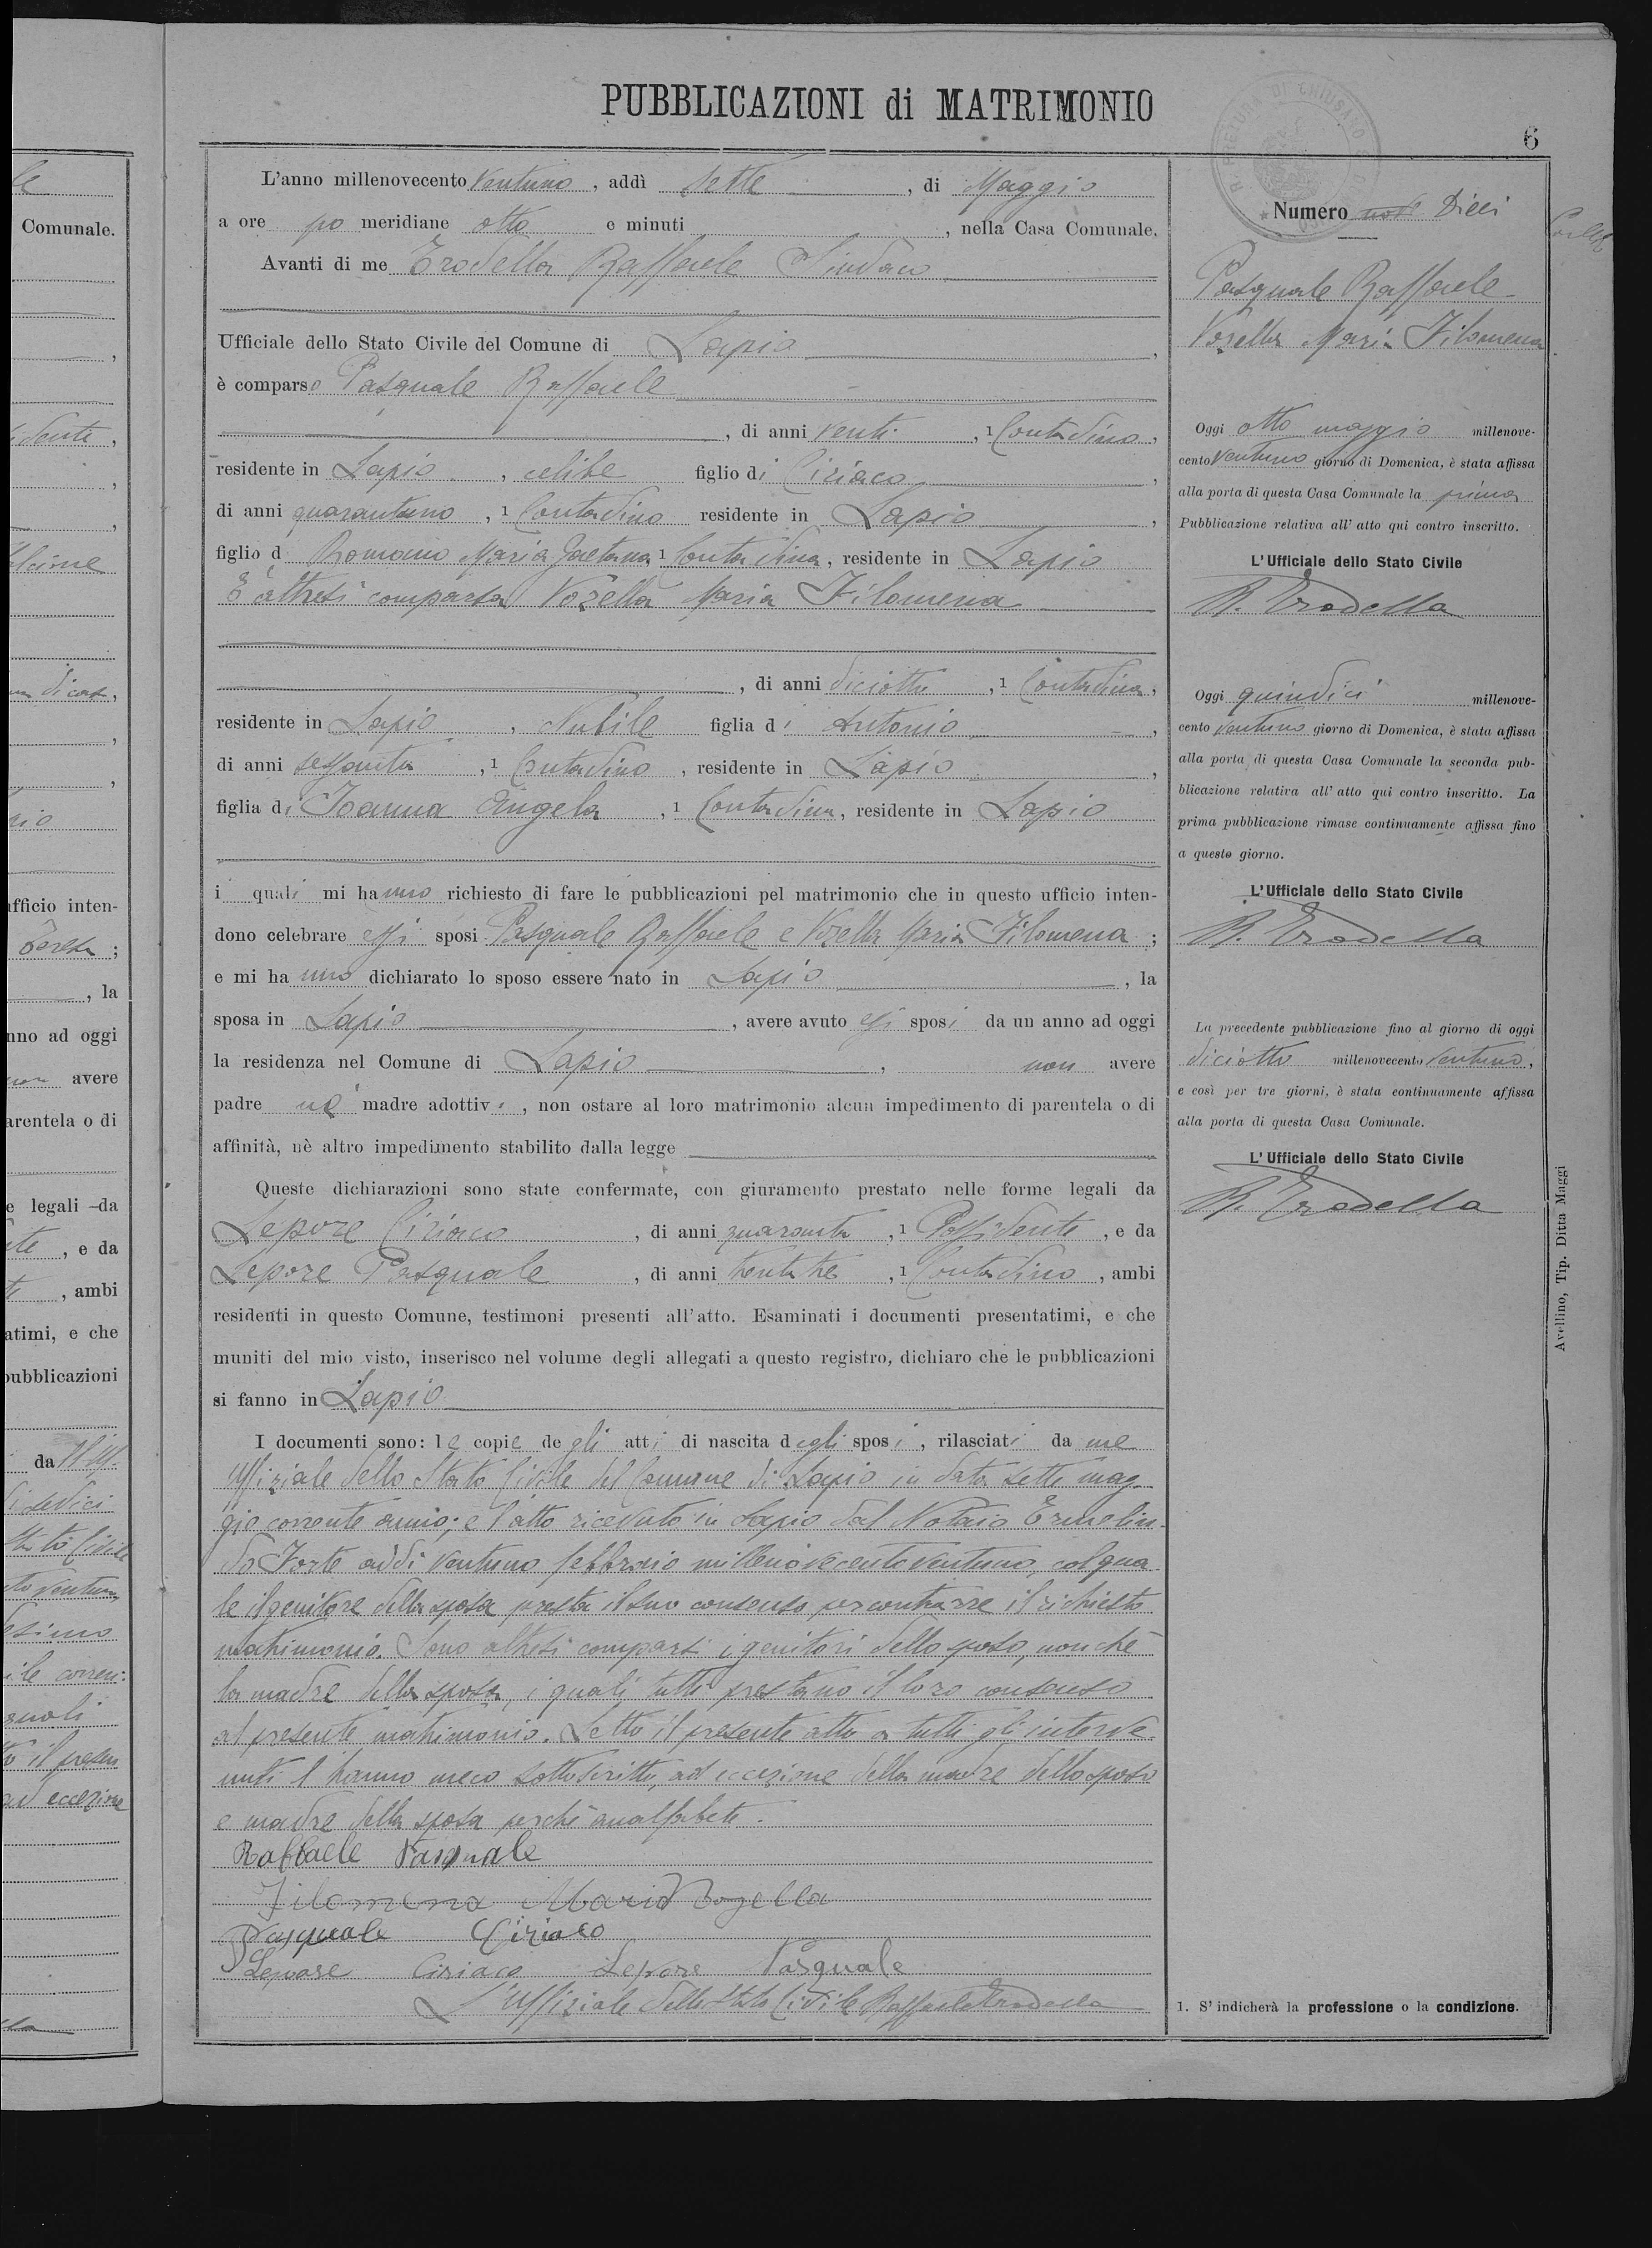 PUBBLICAZIONI di MATRIMONIO
6
L'anno millenovecento Ventuno, addì Sette, di Maggio
a ore po meridiane otto e minuti, nella Casa Comunale.
Avanti di me Erodella Raffaele Sindaco
Ufficiale dello Stato Civile del Comune di Lapio,
è comparso Pasquale Raffaele
, di anni venti, 1 Contadino,
residente in Lapio, celibe figlio di Ciriaco,
di anni quarantuno, 1 Contadino residente in Lapio,
figlio d Romano Maria Gaetana 1 Contadina, residente in Lapio
È altresì comparsa Vozella Maria Filomena
, di anni diciotto, 1 Contadina,
residente in Lapio, Nubile figlia di Antonio,
di anni sessanta, 1 Contadino, residente in Lapio,
figlia di Ioanna Angela, 1 Contadina, residente in Lapio
i quali mi hanno richiesto di fare le pubblicazioni pel matrimonio che in questo ufficio inten-
dono celebrare essi sposi Pasquale Raffaele e Vozella Maria Filomena;
e mi hanno dichiarato lo sposo essere nato in Lapio, la
sposa in Lapio, avere avuto essi sposi da un anno ad oggi
la residenza nel Comune di Lapio, non avere
padre nè madre adottivi, non ostare al loro matrimonio alcun impedimento di parentela o di
affinità, nè altro impedimento stabilito dalla legge
Queste dichiarazioni sono state confermate, con giuramento prestato nelle forme legali da
Lepore Ciriaco, di anni quaranta, 1 Possidente, e da
Lepore Pasquale, di anni trentatre, 1 Contadino, ambi
residenti in questo Comune, testimoni presenti all'atto. Esaminati i documenti presentatimi, e che
muniti del mio visto, inserisco nel volume degli allegati a questo registro, dichiaro che le pubblicazioni
si fanno in Lapio
I documenti sono: le copie degli atti di nascita degli sposi, rilasciati da me
Uffiziale dello Stato Civile del Comune di Lapio in data sette mag-
gio corrente anno; e l'atto ricevuto in Lapio dal Notaio Ermelin-
do Forte addì ventuno febbraio millenovecentoventuno, col qua-
le il genitore della sposa presta il suo consenso per contrarre il richiesto
matrimonio. Sono altresì comparsi i genitori dello sposo, nonchè
la madre della sposa, i quali tutti prestano il loro consenso
al presente matrimonio. Letto il presente atto a tutti gli interve-
nuti l'hanno meco sottoscritto, ad eccezione della madre dello sposo
e madre della sposa perchè analfabete.
Raffaele Pasquale
Filomena Maria Vozella
Pasquale Ciriaco
Lepore Ciriaco Lepore Pasquale
L'Uffiziale dello Stato Civile Raffaele Erodella
Numero nove Dieci
Pasquale Raffaele
Vozella Maria Filomena
Oggi otto maggio millenove-
cento ventuno giorno di Domenica, è stata affissa
alla porta di questa Casa Comunale la prima
Pubblicazione relativa all'atto qui contro inscritto.
L'Ufficiale dello Stato Civile
R. Erodella
Oggi quindici millenove-
cento ventuno giorno di Domenica, è stata affissa
alla porta di questa Casa Comunale la seconda pub-
blicazione relativa all'atto qui contro inscritto. La
prima pubblicazione rimase continuamente affissa fino
a questo giorno.
L'Ufficiale dello Stato Civile
R. Erodella
La precedente pubblicazione fino al giorno di oggi
diciotto millenovecento ventuno,
e così per tre giorni, è stata continuamente affissa
alla porta di questa Casa Comunale.
L'Ufficiale dello Stato Civile
R. Erodella
1. S'indicherà la professione o la condizione.
Avellino, Tip. Ditta Maggi
Comunale.
fficio inten-
, la
nno ad oggi
avere
arentela o di
e legali da
, e da
, ambi
atimi, e che
pubblicazioni
da
ad eccezione